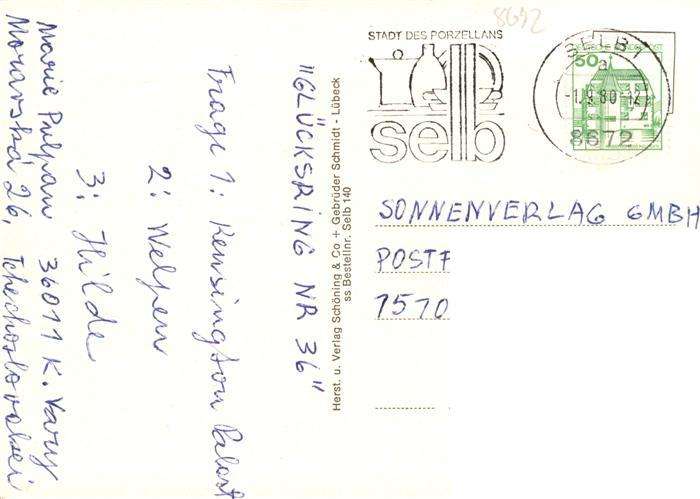 "GLÜCKSRING NR 36"
Frage 1: Kensington Palast
2: Welpen
3: Hilde
Marie Pulpan 36011 K. Vary
Moravská 26, Tchechoslovakei
Herst. u. Verlag Schöning & Co + Gebrüder Schmidt - Lübeck
ss Bestellnr. Selb 140
8672
STADT DES PORZELLANS
selb
SELB 1
-1.9.80-12
8672
50
SONNENVERLAG GMBH
POSTF
7570